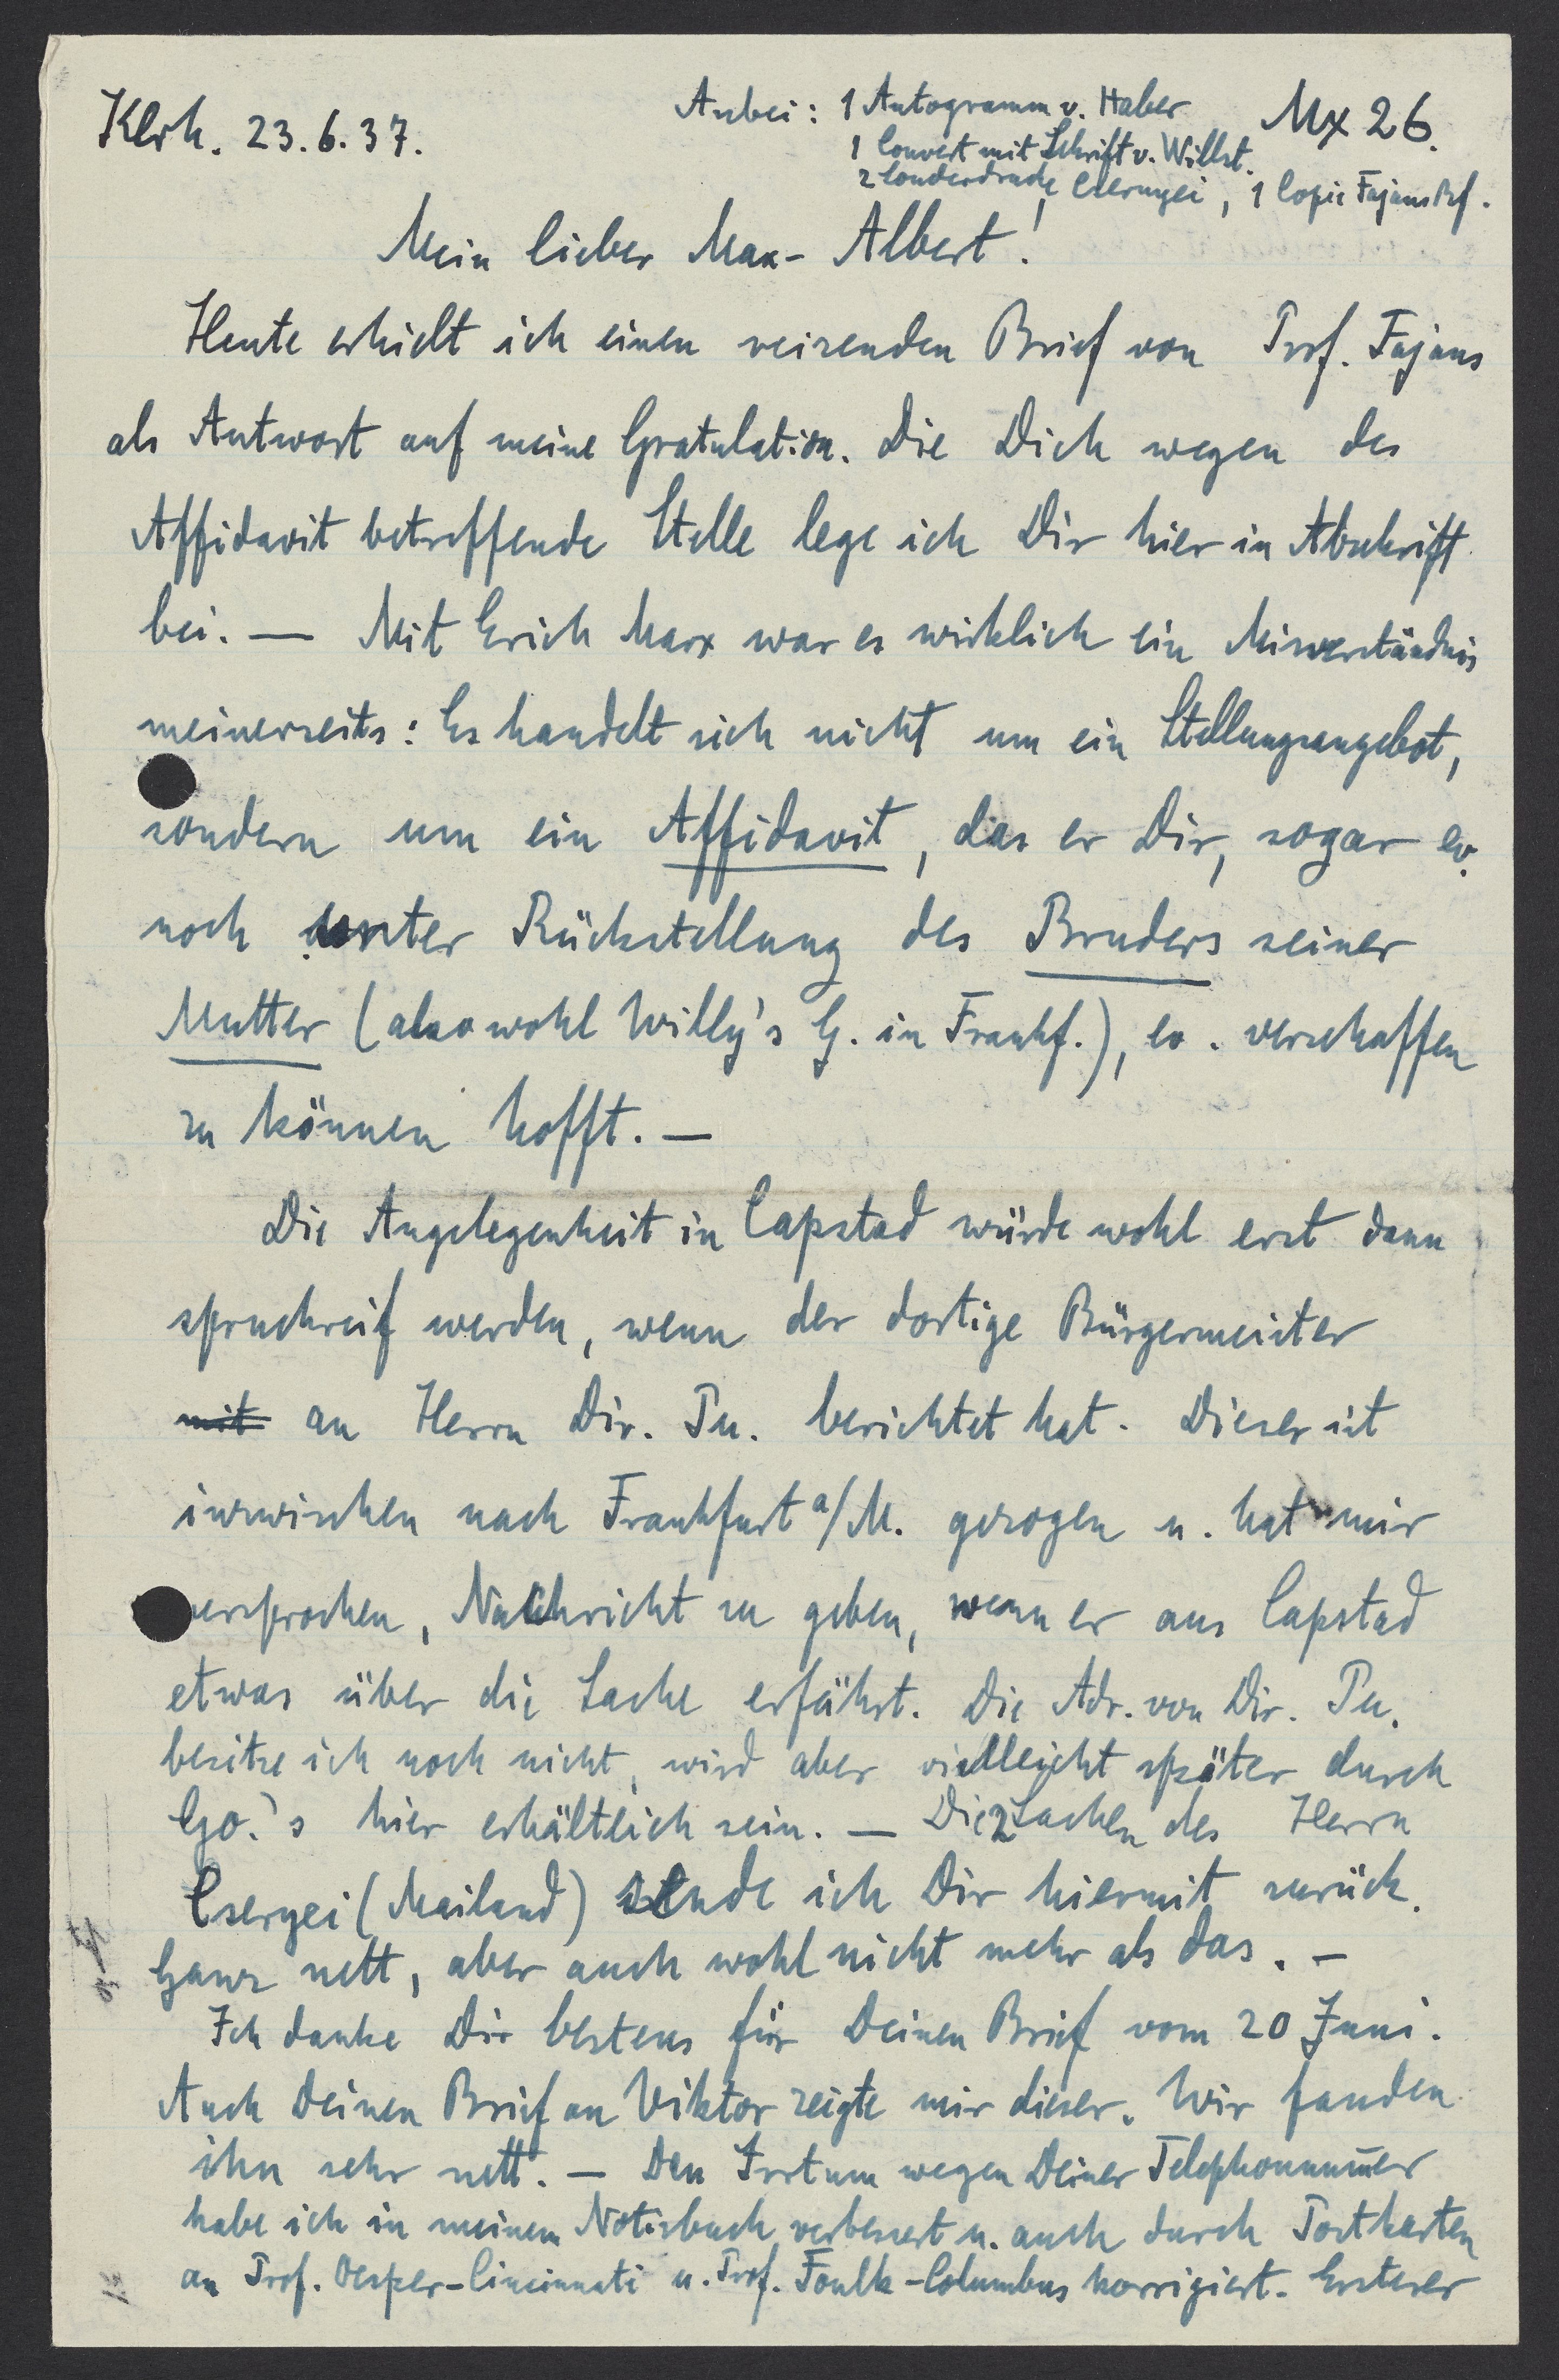 Klrh. 23.6.37.
Anbei: 1 Autogramm v. Haber
Mx 26.
1 Couvert mit Schrift v. Willst.
2 Sonderdrucke, 1 Copie Fajans Brf.
Mein lieber Max-Albert!
Heute erhielt ich einen reizenden Brief von Prof. Fajans
als Antwort auf meine Gratulation. Die Dich wegen des
Affidavit betreffende Stelle lege ich Dir hier in Abschrift
bei. — Mit Erich Marx war es wirklich ein Misverständnis
meinerseits: Es handelt sich nicht um ein Stellungsangebot,
sondern um ein Affidavit, das er Dir, sogar ev.
noch unter Rückstellung des Bruders seiner
Mutter (also wohl Willy's G. in Frankf.), ev. verschaffen
zu können hofft. —
Die Angelegenheit in Capstad würde wohl erst dann
spruchreif werden, wenn der dortige Bürgermeister
mit an Herrn Dir. Pu. berichtet hat. Dieser ist
inzwischen nach Frankfurt a/M. gezogen u. hat mir
versprochen, Nachricht zu geben, wenn er aus Capstad
etwas über die Sache erfährt. Die Adr. von Dir. Pu.
besitze ich noch nicht, wird aber vielleicht später durch
Go.'s hier erhältlich sein. — Die 2 Sachen des Herrn
(Mailand) sende ich Dir hiermit zurück.
Ganz nett, aber auch wohl nicht mehr als das. —
Ich danke Dir bestens für Deinen Brief vom 20 Juni.
Auch Deinen Brief an Viktor zeigte mir dieser. Wir fanden
ihn sehr nett. — Den Irrtum wegen Deiner Telephonnum̅er
habe ich in meinem Notizbuch verbessert u. auch durch Postkarten
an Prof. Oesper-Cincinnati u. Prof. Foulk-Columbus korrigiert. Ersterer